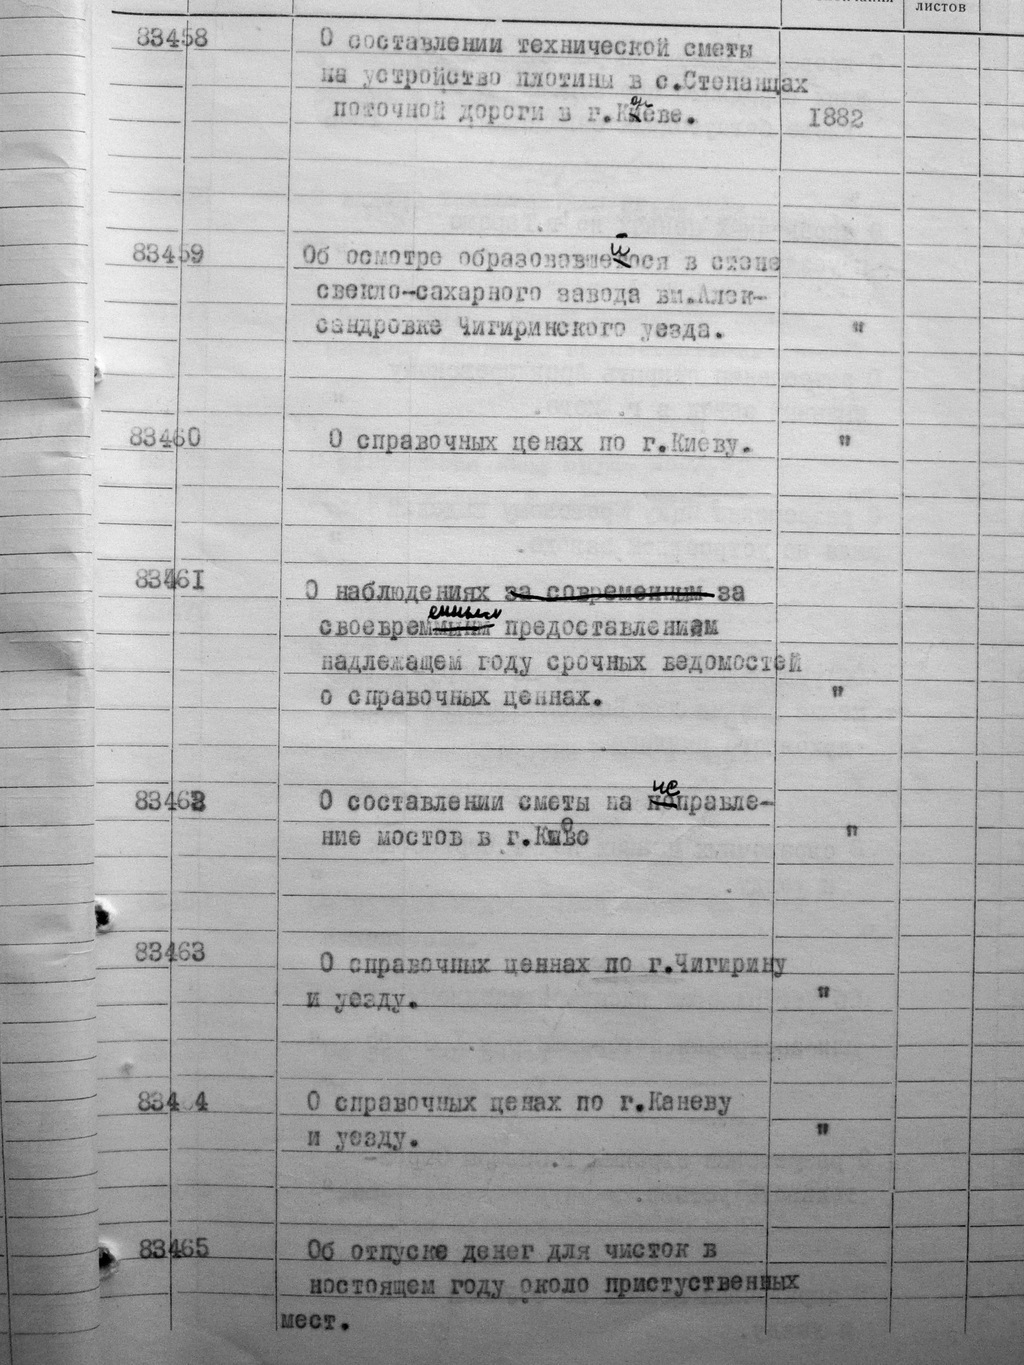 листов
83458 О составлении технической сметы
на устройство плотины в с.Степанцах
поточной дороги в г.Киеве. 1882
83459 Об осмотре образовавшейося в стене
свекло-сахарного завода вм.Алек-
сандровке Чигиринского уезда. "
83460 О справочных ценах по г.Киеву. "
83461 О наблюдениях за современным за
своевременным предоставлением
надлежащем году срочных ведомостей
о справочных ценнах. "
83462 О составлении сметы на исправле-
ние мостов в г.Киеве "
83463 О справочных ценнах по г.Чигирину
и уезду. "
834 4 О справочных ценах по г.Каневу
и уезду. "
83465 Об отпуске денег для чисток в
ностоящем году около пристуственных
мест.